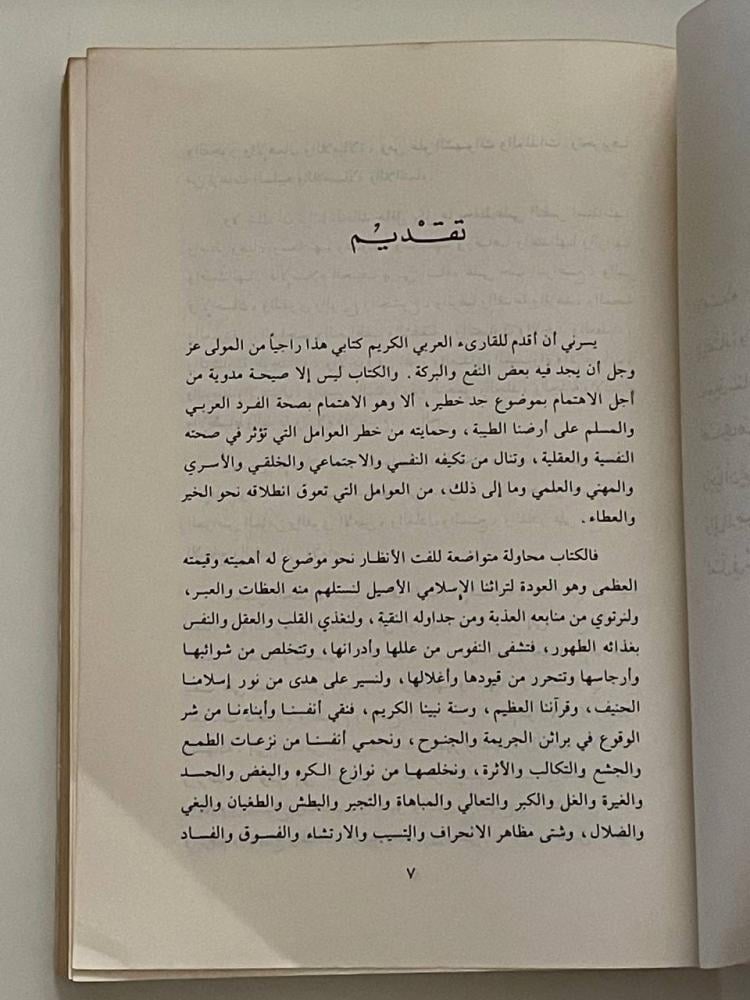 تقـديـم
يسرني أن أقدم للقارىء العربي الكريم كتابي هذا راجياً من المولى عز
وجل أن يجد فيه بعض النفع والبركة. والكتاب ليس إلا صيحة مدوية من
أجل الاهتمام بموضوع جد خطير، ألا وهو الاهتمام بصحة الفرد العربي
والمسلم على أرضنا الطيبة، وحمايته من خطر العوامل التي تؤثر في صحته
النفسية والعقلية، وتنال من تكيفه النفسي والاجتماعي والخلقي والأسري
والمهني والعلمي وما إلى ذلك، من العوامل التي تعوق انطلاقه نحو الخير
والعطاء.
فالكتاب محاولة متواضعة للفت الأنظار نحو موضوع له أهميته وقيمته
العظمى وهو العودة لتراثنا الإسلامي الأصيل لنستلهم منه العظات والعبر،
ولنرتوي من منابعه العذبة ومن جداوله النقية، ولنغذي القلب والعقل والنفس
بغذائه الطهور، فتشفى النفوس من عللها وأدرانها، وتتخلص من شوائبها
وأرجاسها وتتحرر من قيودها وأغلالها، ولنسير على هدى من نور إسلامنا
الحنيف، وقرآننا العظيم، وسنة نبينا الكريم، فنقي أنفسنا وأبناءنا من شر
الوقوع في براثن الجريمة والجنوح، ونحمي أنفسنا من نزعات الطمع
والجشع والتكالب والأثرة، ونخلصها من نوازع الكره والبغض والحسد
والغيرة والغل والكبر والتعالي والمباهاة والتجبر والبطش والطغيان والبغي
والضلال، وشتى مظاهر الانحراف والتسيب والارتشاء والفسوق والفساد
٧